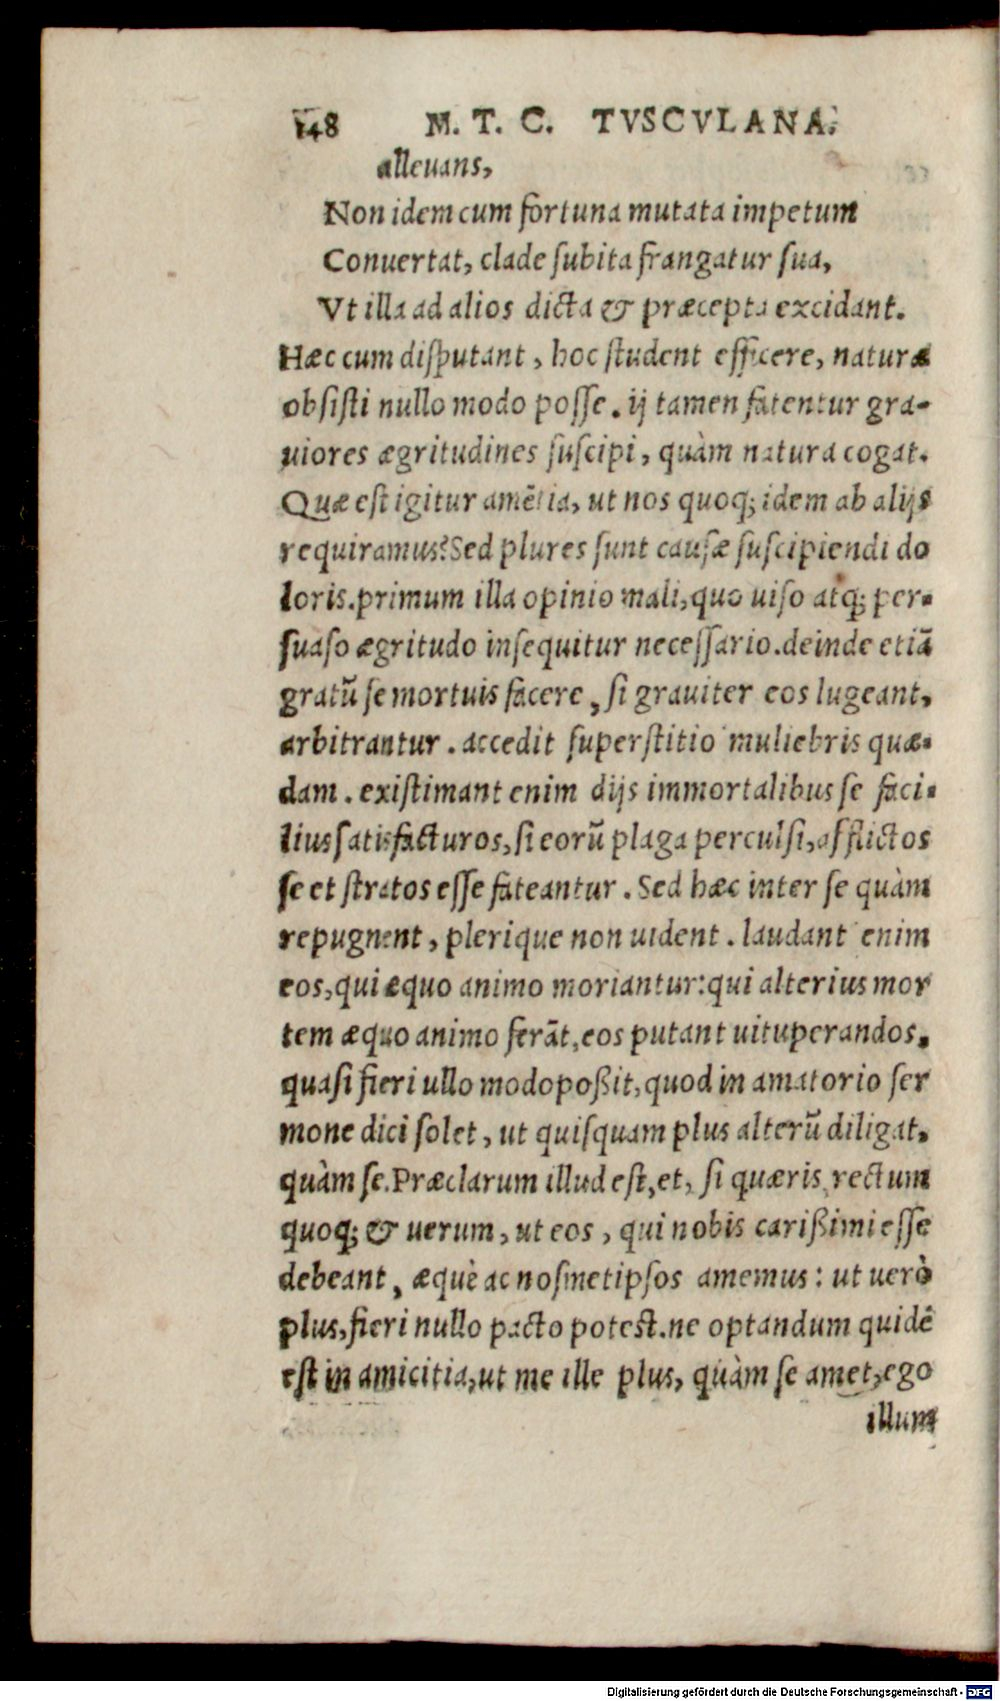 148 M. T. C. TVSCVLANA.
alleuans,
Non idem cum fortuna mutata impetum
Conuertat, clade subita frangatur sua,
Vt illa ad alios dicta & præcepta excidant.
Hæc cum disputant, hoc student efficere, naturæ
obsisti nullo modo posse. ij tamen fatentur gra-
uiores ægritudines suscipi, quàm natura cogat.
Quæ est igitur amẽtia, ut nos quoq; idem ab alijs
requiramus? Sed plures sunt causæ suscipiendi do
loris. primum illa opinio mali, quo uiso atq; per-
suaso ægritudo insequitur necessario. deinde etiã
gratũ se mortuis facere, si grauiter eos lugeant,
arbitrantur. accedit superstitio muliebris quæ-
dam. existimant enim dijs immortalibus se faci-
lius satisfacturos, si eorũ plaga perculsi, afflictos
se et stratos esse fateantur. Sed hæc inter se quàm
repugnent, plerique non uident. laudant enim
eos, qui æquo animo moriantur: qui alterius mor
tem æquo animo ferãt, eos putant uituperandos.
quasi fieri ullo modo poßit, quod in amatorio ser
mone dici solet, ut quisquam plus alterũ diligat,
quàm se. Præclarum illud est, et, si quæris, rectum
quoq; & uerum, ut eos, qui nobis carißimi esse
debeant, æquè ac nosmetipsos amemus: ut uerò
plus, fieri nullo pacto potest. ne optandum quidẽ
est in amicitia, ut me ille plus, quàm se amet, ego
illum
Digitalisierung gefördert durch die Deutsche Forschungsgemeinschaft - DFG